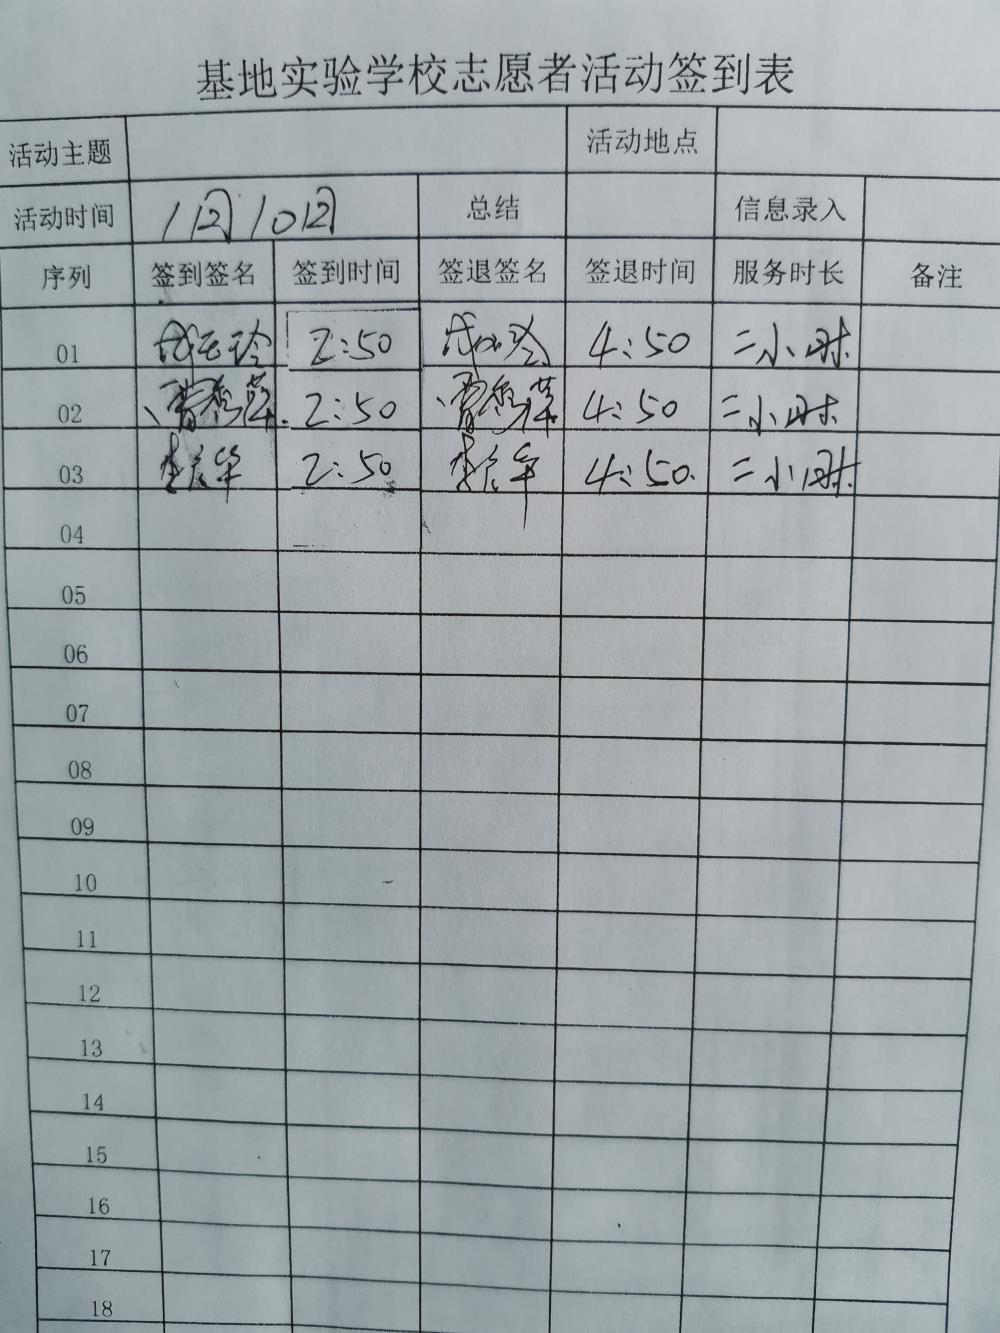 基地实验学校志愿者活动签到表
活动主题 活动地点
活动时间 1月10日 总结 信息录入
序列 签到签名 签到时间 签退签名 签退时间 服务时长 备注
01 2:50 4:50 二小时
02 2:50 4:50 二小时
03 2:50 4:50 二小时
04
05
06
07
08
09
10
11
12
13
14
15
16
17
18